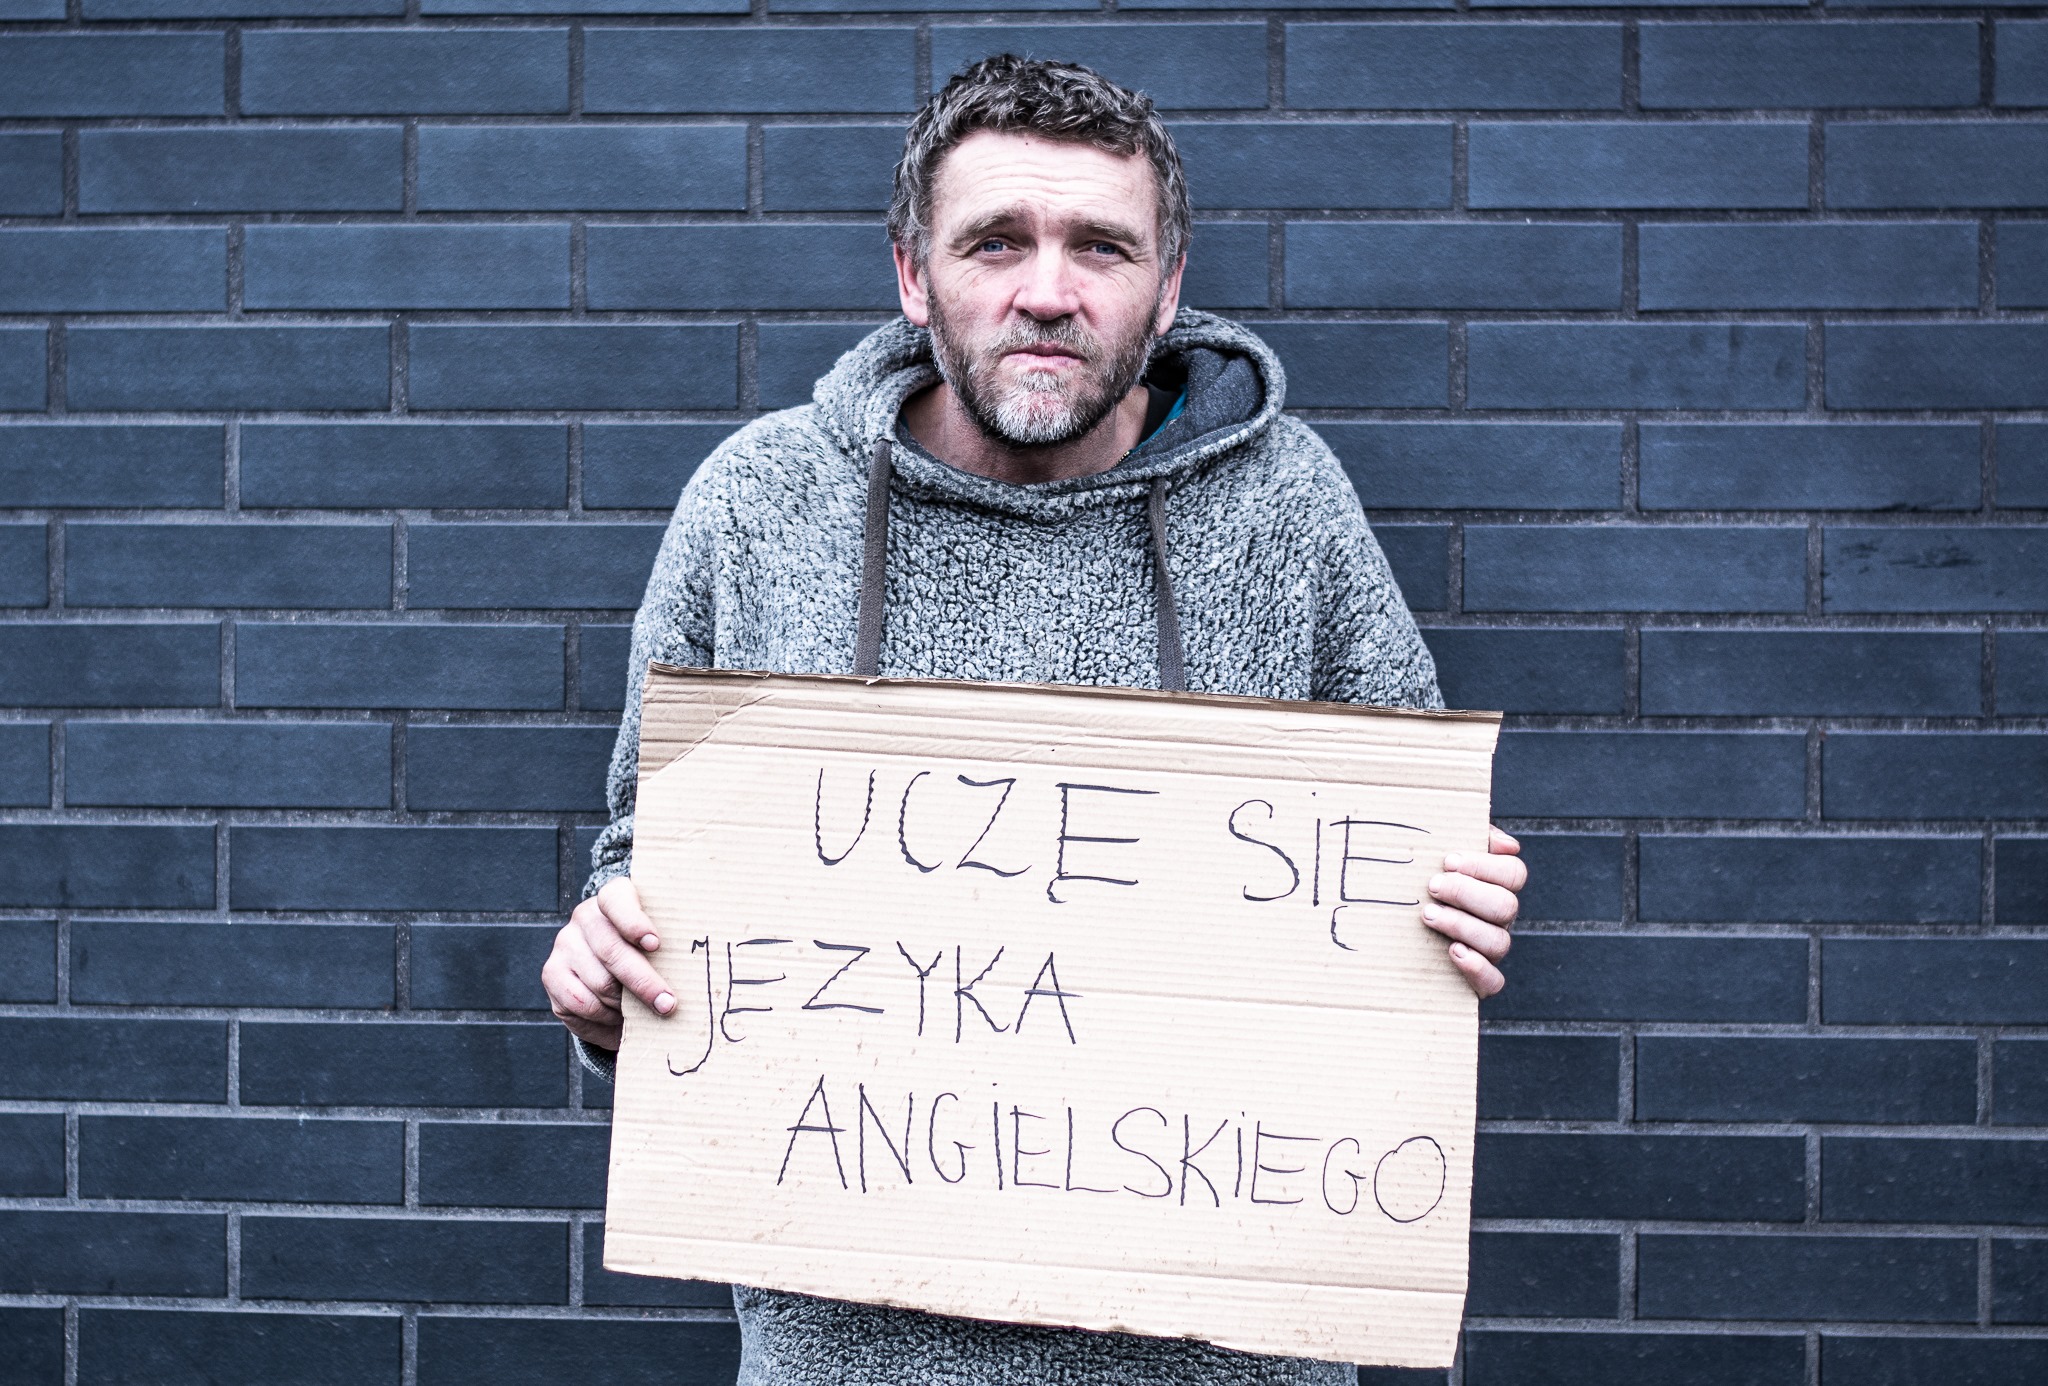 UCZĘ SIĘ
JĘZYKA
ANGIELSKIEGO